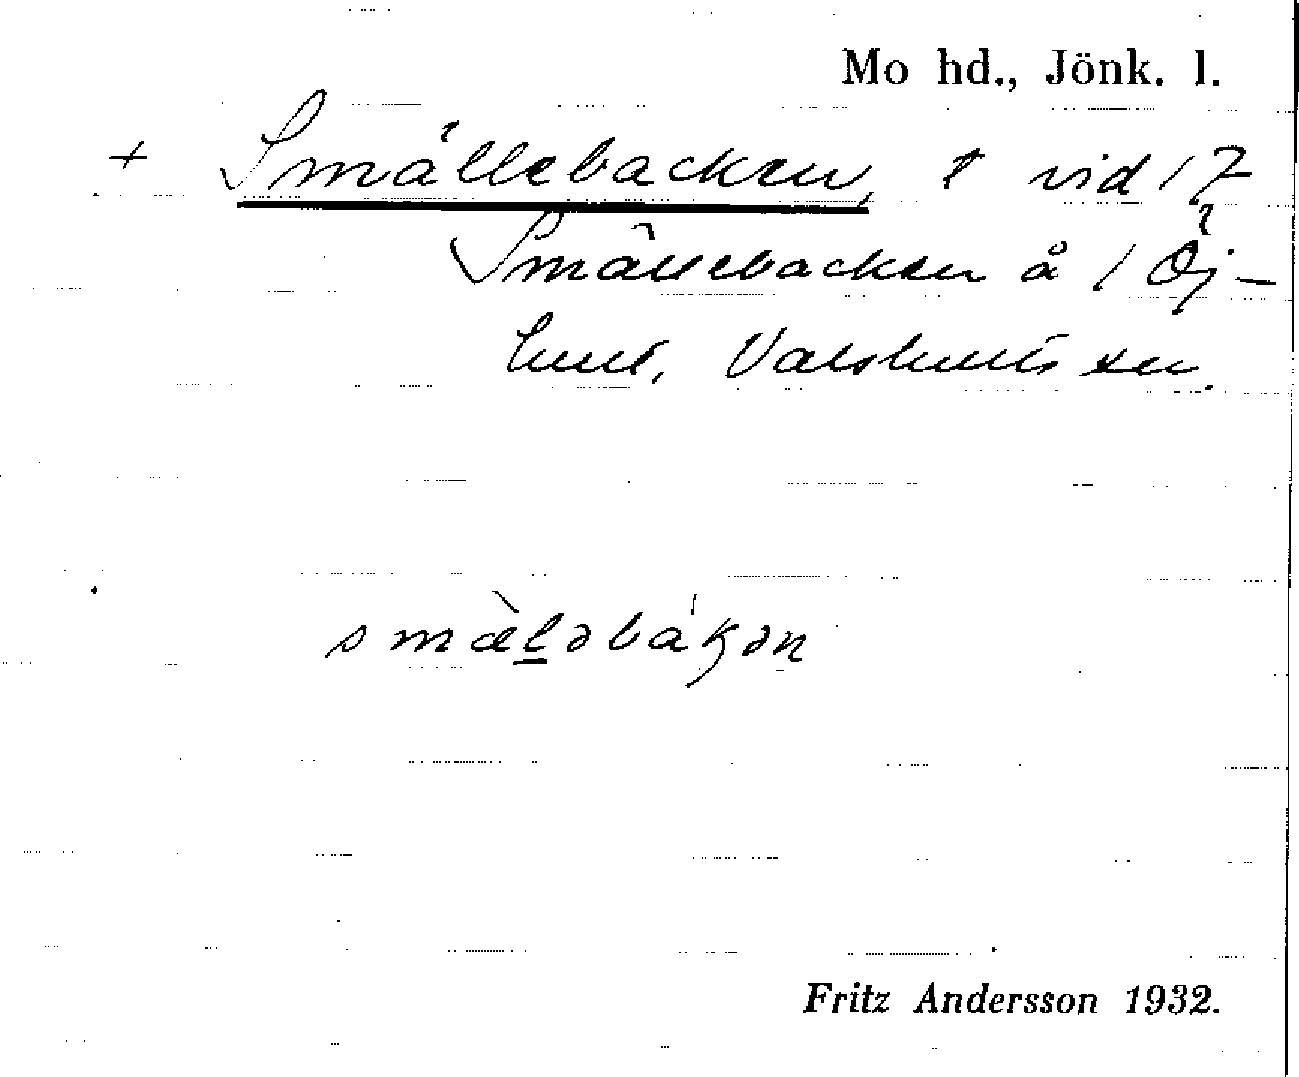 Mo hd., Jönk. l.
+ Smällebacken, t vid 17
Smällebacken å 1 Öj-
hult, Valshults sn.
smæ̀lləbákən
Fritz Andersson 1932.